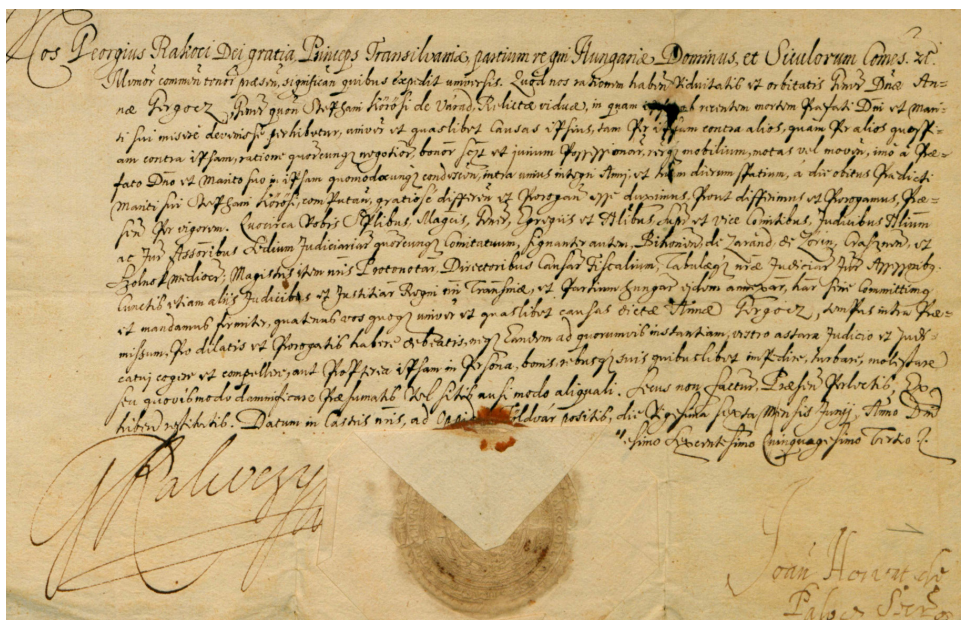 Nos Georgius Rakoci Dei gratia Princeps Transilvaniæ, partium regni Hungariæ Dominus, et Siculorum Comes. etc.
memor commen tenore præsen, significan quibus expedit universis. Quod nos rationem haben viduitatis et orbitatis Gener Dnæ An-
næ Gergocz, Gener quon Stephani Körösi de Varad, Relictæ viduæ, in quam ob recentem mortem Præfati Dni et Mari-
ti sui misere devenisse perhibetur, univer et quaslibet causas ipsius, tam Per ipsam contra alios, quam Per alios quospi-
am contra ipsam, ratione quorcunq negotior, bonor scilt et jurium Possessionar, rerq mobilium, motas vel moven, imo à Præ-
fato Dno et Marito suo p ipsam quomodocunq condescen, intra unius integri Anni, et dierum spatium, á die obitus Prædicti
Mariti sui Stephani Körösi, computan, gratiose differen et Prorogan esse duximus, Prout differimus et Prorogamus, Præ-
sen Per vigorem. Quocirca Vobis Splibus Magcis, Gener, Egregiis et Nlibus, Supr et Vice Comitibus, Judicibus Nlium
ac Jur Assoribus Sedium Judiciariar quorcunq Comitatuum, signanter autem, Bihorien de Zarand, de Zorin, Crasznen, et
Szolnok mediocr; Magistris item nris Protonotar, Directoribus Causar Fiscalium, Tabulæq nræ Judiciar Jur Assessorib.
Cunctis etiam aliis Judicibus et Justitiar Regni nri Transniæ, et Partium Hungar eidem annexar, har serie Committimq
et mandamus firmiter, quatenus vos quoq univer et quaslibet causas dictæ Annæ Gergocz, tempus intra Præ-
missum, Pro dilatis et Prorogatis habere debeatis, neq Eandem ad quorumvis instantiam, vestro astare Judicio et Judi-
catui cogere et compellere, aut Propterea ipsam in Persona, bonis, rebusq suis quibuslibet impedire, turbare, molestare
seu quovis modo damnificare Præsumatis Vel sitis ausi modo aliquali. Secus non factur, Præsen Perlectis, Ex-
hiben restitutis. Datum in Castris nris, ad Földvar positis, die Vigesima sexta Mensis Junij, Anno Dni
esimo Sexcentesimo Quinquagesimo Tertio.
G Rakoczy
Joan Horvat de
Palocz Secr